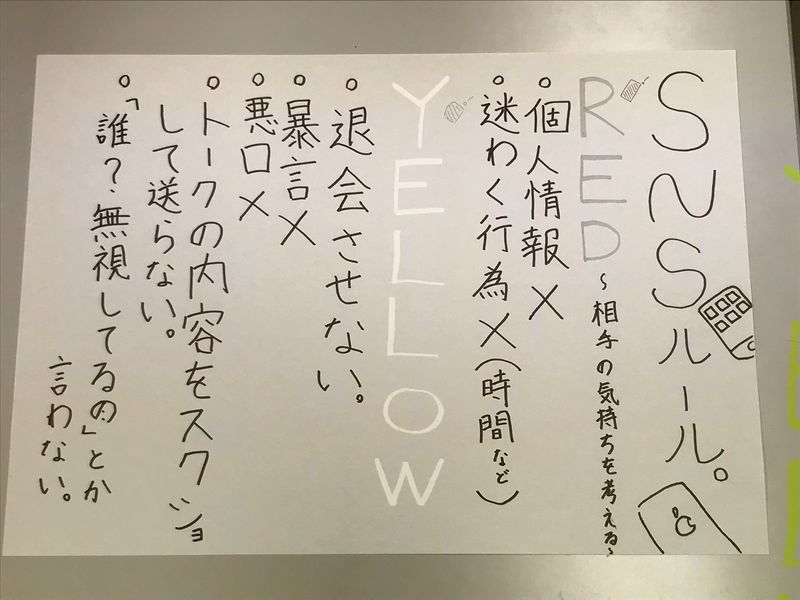 SNSルール。
RED
〜相手の気持ちを考える〜
・個人情報×
・迷わく行為×(時間など)
YELLOW
・退会させない。
・暴言×
・悪口×
・トークの内容をスクショ
して送らない。
・「誰？無視してるの」とか
言わない。